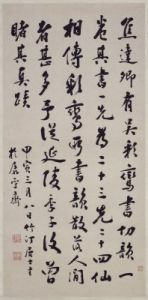 焦達卿有吳彩鸞書切韻一
卷其書一先為二十三先二十四仙
相傳彩鸞所書韻散落人間
者甚多予從延陵季子後曾
睹其真蹟
甲寅二月八日竹汀居士書
於孱守齋